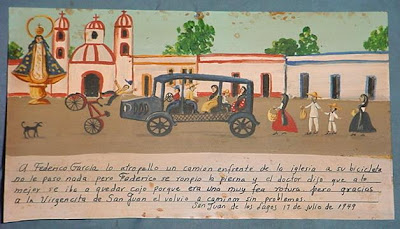 A Federico García lo atropello un camion enfrente de la iglesia a su bicicleta
no le paso nada pero Federico se rompio la pierna y el doctor dijo que a lo
mejor se iba a quedar cojo porque era una muy fea rotura. pero gracias
a la Virgencita de San Juan el volvio a caminar sin problemas.
San Juan de los Lagos 17 de julio de 1949